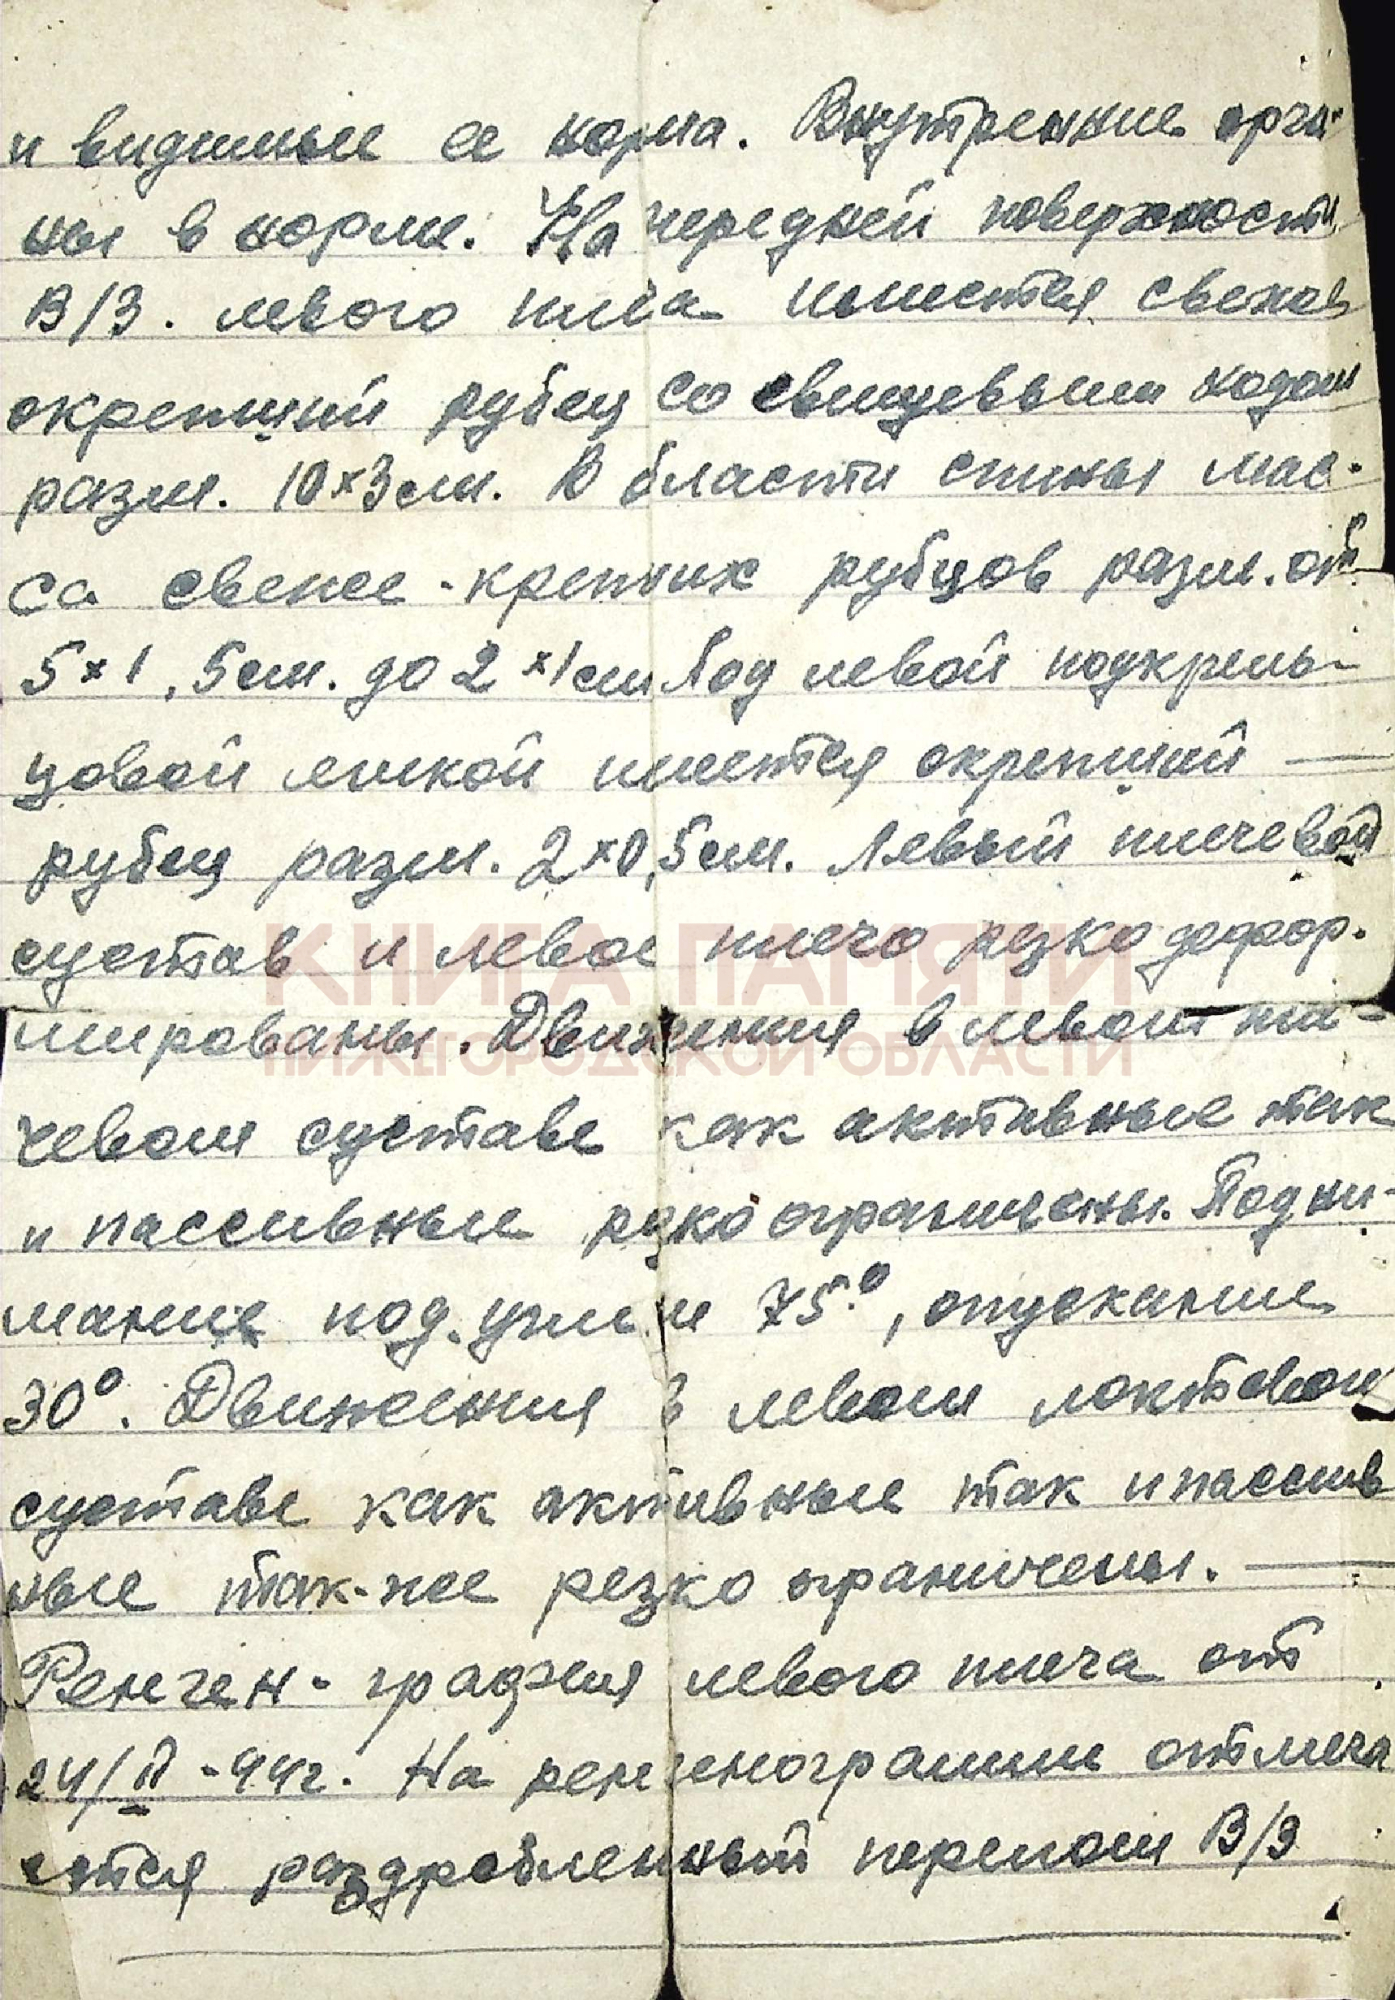 и видимые ее норма. Внутренние орга-
ны в норме. На передней поверхности
В/З. левого плеча имеется свеже
окрепший рубец со свищевым ходом
разм. 10×3 см. В области спины мас-
са свеже-крепших рубцов разм. от
5×1,5 см. до 2×1 см Под левой подкрыль-
цовой ямкой имеется окрепший —
рубец разм. 2×0,5 см. Левый плечевой
сустав и левое плечо резко дефор-
мированы. Движения в левом пле-
чевом суставе как активные так
и пассивные резко ограничены. Подни-
мание под углом 75°, опускание
30°. Движения в левом локтевом
суставе как активные так и пассив
ные так-же резко ограничены. —
Ренген-графия левого плеча от
24/II-44г. На ренгенограмме отмеча
ется раздробленный перелом В/З
КНИГА ПАМЯТИ
НИЖЕГОРОДСКОЙ ОБЛАСТИ